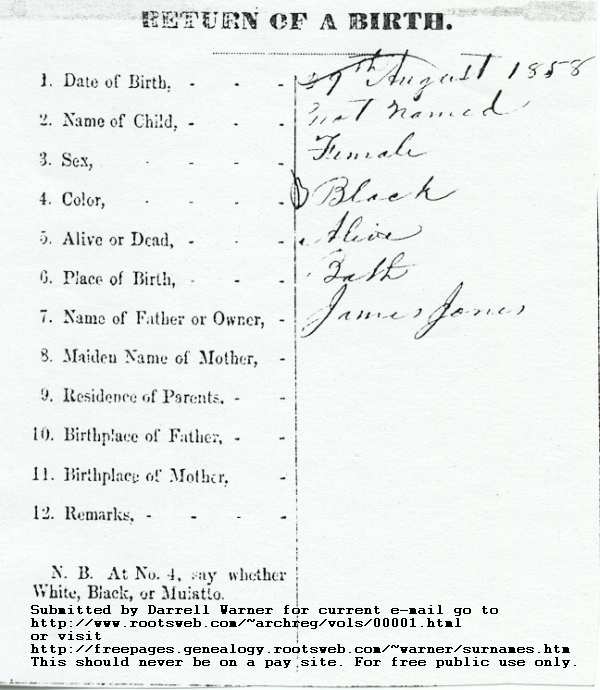 RETURN OF A BIRTH.
1. Date of Birth, - - - 29th August 1858
2. Name of Child, - - - not named
3. Sex, - - - Female
4. Color, - - - Black
5. Alive or Dead, - - - Alive
6. Place of Birth, - - - Bath
7. Name of Father or Owner, - James Jones
8. Maiden Name of Mother, -
9. Residence of Parents, - -
10. Birthplace of Father, - -
11. Birthplace of Mother, -
12. Remarks, - - - -
N. B. At No. 4, say whether
White, Black, or Mulatto.
Submitted by Darrell Warner for current e-mail go to
http://www.rootsweb.com/~archreg/vols/00001.html
or visit
http://freepages.genealogy.rootsweb.com/~warner/surnames.htm
This should never be on a pay site. For free public use only.